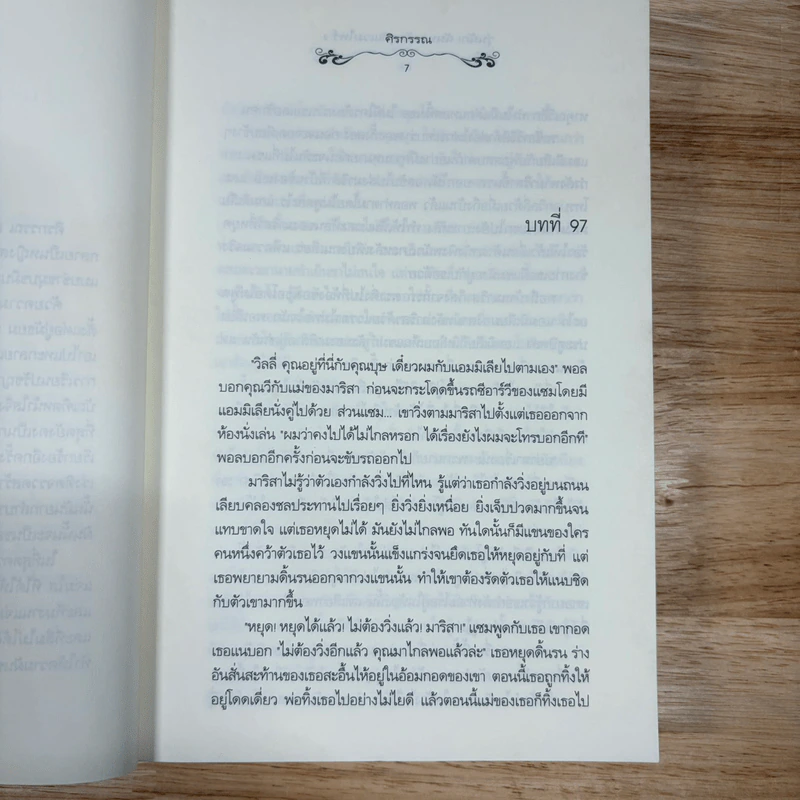 ศิรกรรณ
7
บทที่ 97
"วิลลี่ คุณอยู่ที่นี่กับคุณบุษ เดี๋ยวผมกับแอมมิเลียไปตามเอง" พอล
บอกคุณวีกับแม่ของมาริสา ก่อนจะกระโดดขึ้นรถซีอาร์วีของแซมโดยมี
แอมมิเลียนั่งคู่ไปด้วย ส่วนแซม... เขาวิ่งตามมาริสาไปตั้งแต่เธอออกจาก
ห้องนั่งเล่น "ผมว่าคงไปได้ไม่ไกลหรอก ได้เรื่องยังไงผมจะโทรบอกอีกที"
พอลบอกอีกครั้งก่อนจะขับรถออกไป
มาริสาไม่รู้ว่าตัวเองกำลังวิ่งไปที่ไหน รู้แต่ว่าเธอกำลังวิ่งอยู่บนถนน
เลียบคลองชลประทานไปเรื่อยๆ ยิ่งวิ่งยิ่งเหนื่อย ยิ่งเจ็บปวดมากขึ้นจน
แทบขาดใจ แต่เธอหยุดไม่ได้ มันยังไม่ไกลพอ ทันใดนั้นก็มีแขนของใคร
คนหนึ่งคว้าตัวเธอไว้ วงแขนนั้นแข็งแกร่งจนยึดเธอให้หยุดอยู่กับที่ แต่
เธอพยายามดิ้นรนออกจากวงแขนนั้น ทำให้เขาต้องรัดตัวเธอให้แนบชิด
กับตัวเขามากขึ้น
"หยุด! หยุดได้แล้ว! ไม่ต้องวิ่งแล้ว! มาริสา!" แซมพูดกับเธอ เขากอด
เธอแนบอก "ไม่ต้องวิ่งอีกแล้ว คุณมาไกลพอแล้วล่ะ" เธอหยุดดิ้นรน ร่าง
อันสั่นสะท้านของเธอสะอื้นไห้อยู่ในอ้อมกอดของเขา ตอนนี้เธอถูกทิ้งให้
อยู่โดดเดี่ยว พ่อทิ้งเธอไปอย่างไม่ไยดี แล้วตอนนี้แม่ของเธอก็ทิ้งเธอไป